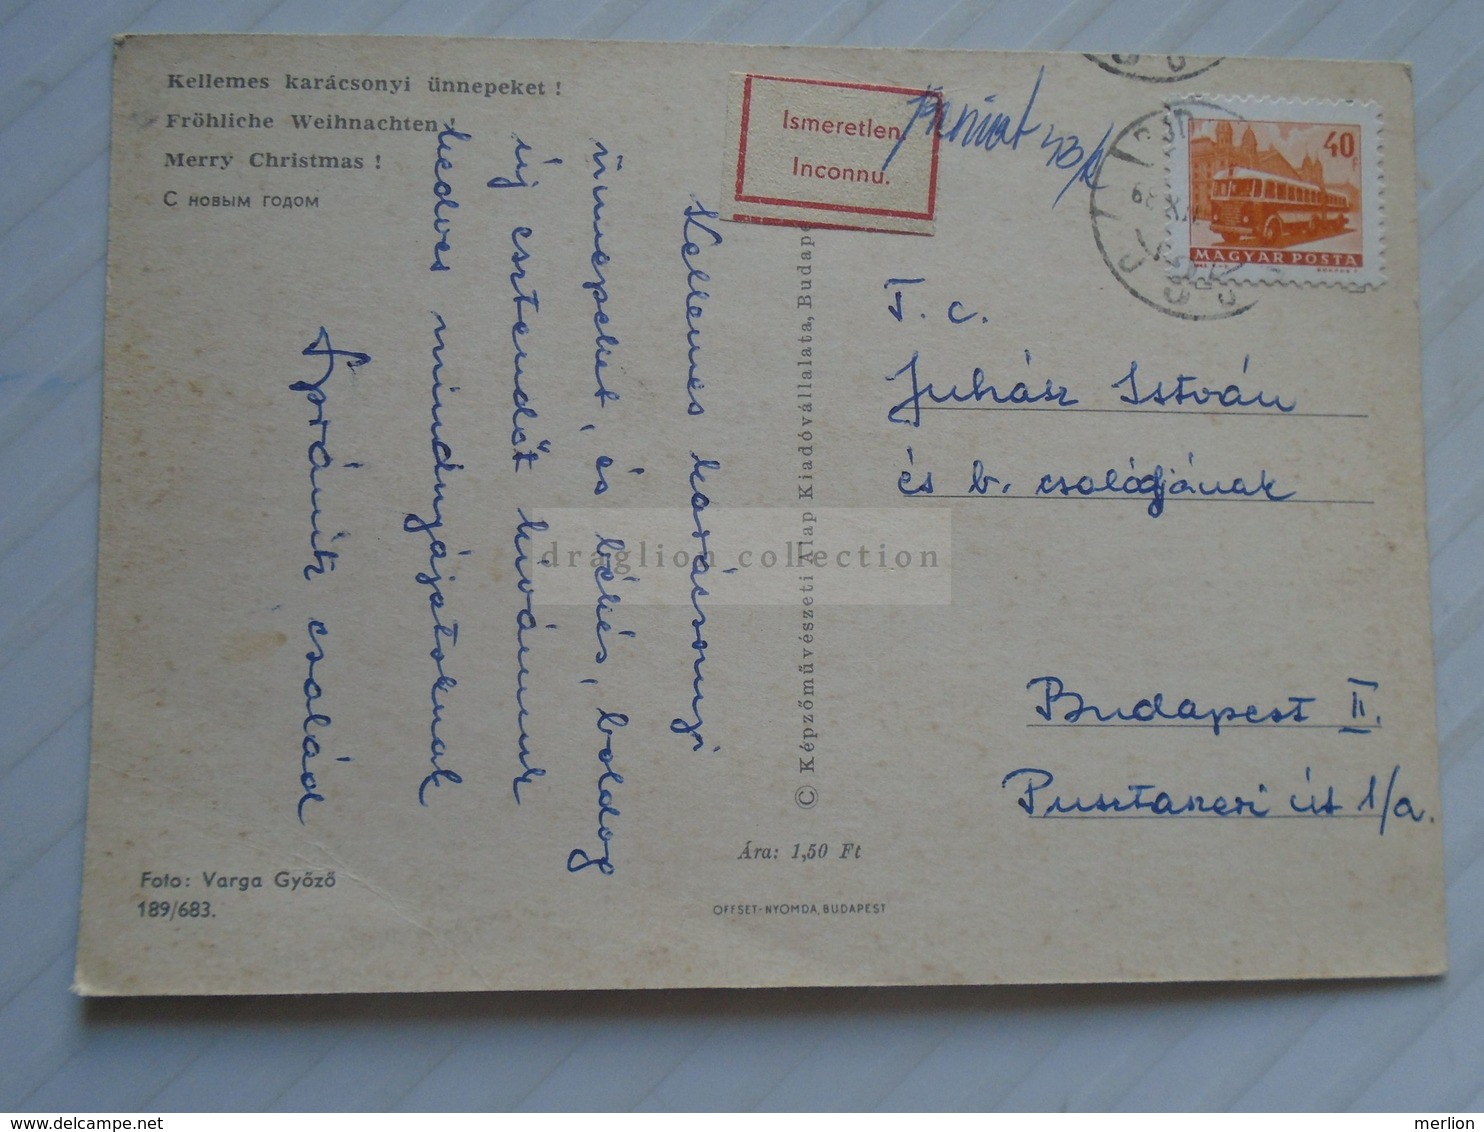 Kellemes karácsonyi ünnepeket !
Fröhliche Weihnachten !
Merry Christmas !
С новым годом
Kellemes karácsonyi
ünnepeket, és békés, boldog
új esztendőt kívánunk
kedves mindnyájatoknak
család
Foto: Varga Győző
189/683.
© Képzőművészeti Alap Kiadóvállalata, Budape
Ára: 1,50 Ft
OFFSET-NYOMDA, BUDAPEST
Ismeretlen
Inconnu.
40f
MAGYAR POSTA
T. c.
Juhász István
és b. családjának
Budapest II.
Pusztaszeri út 1/a.
draglion collection
merlion